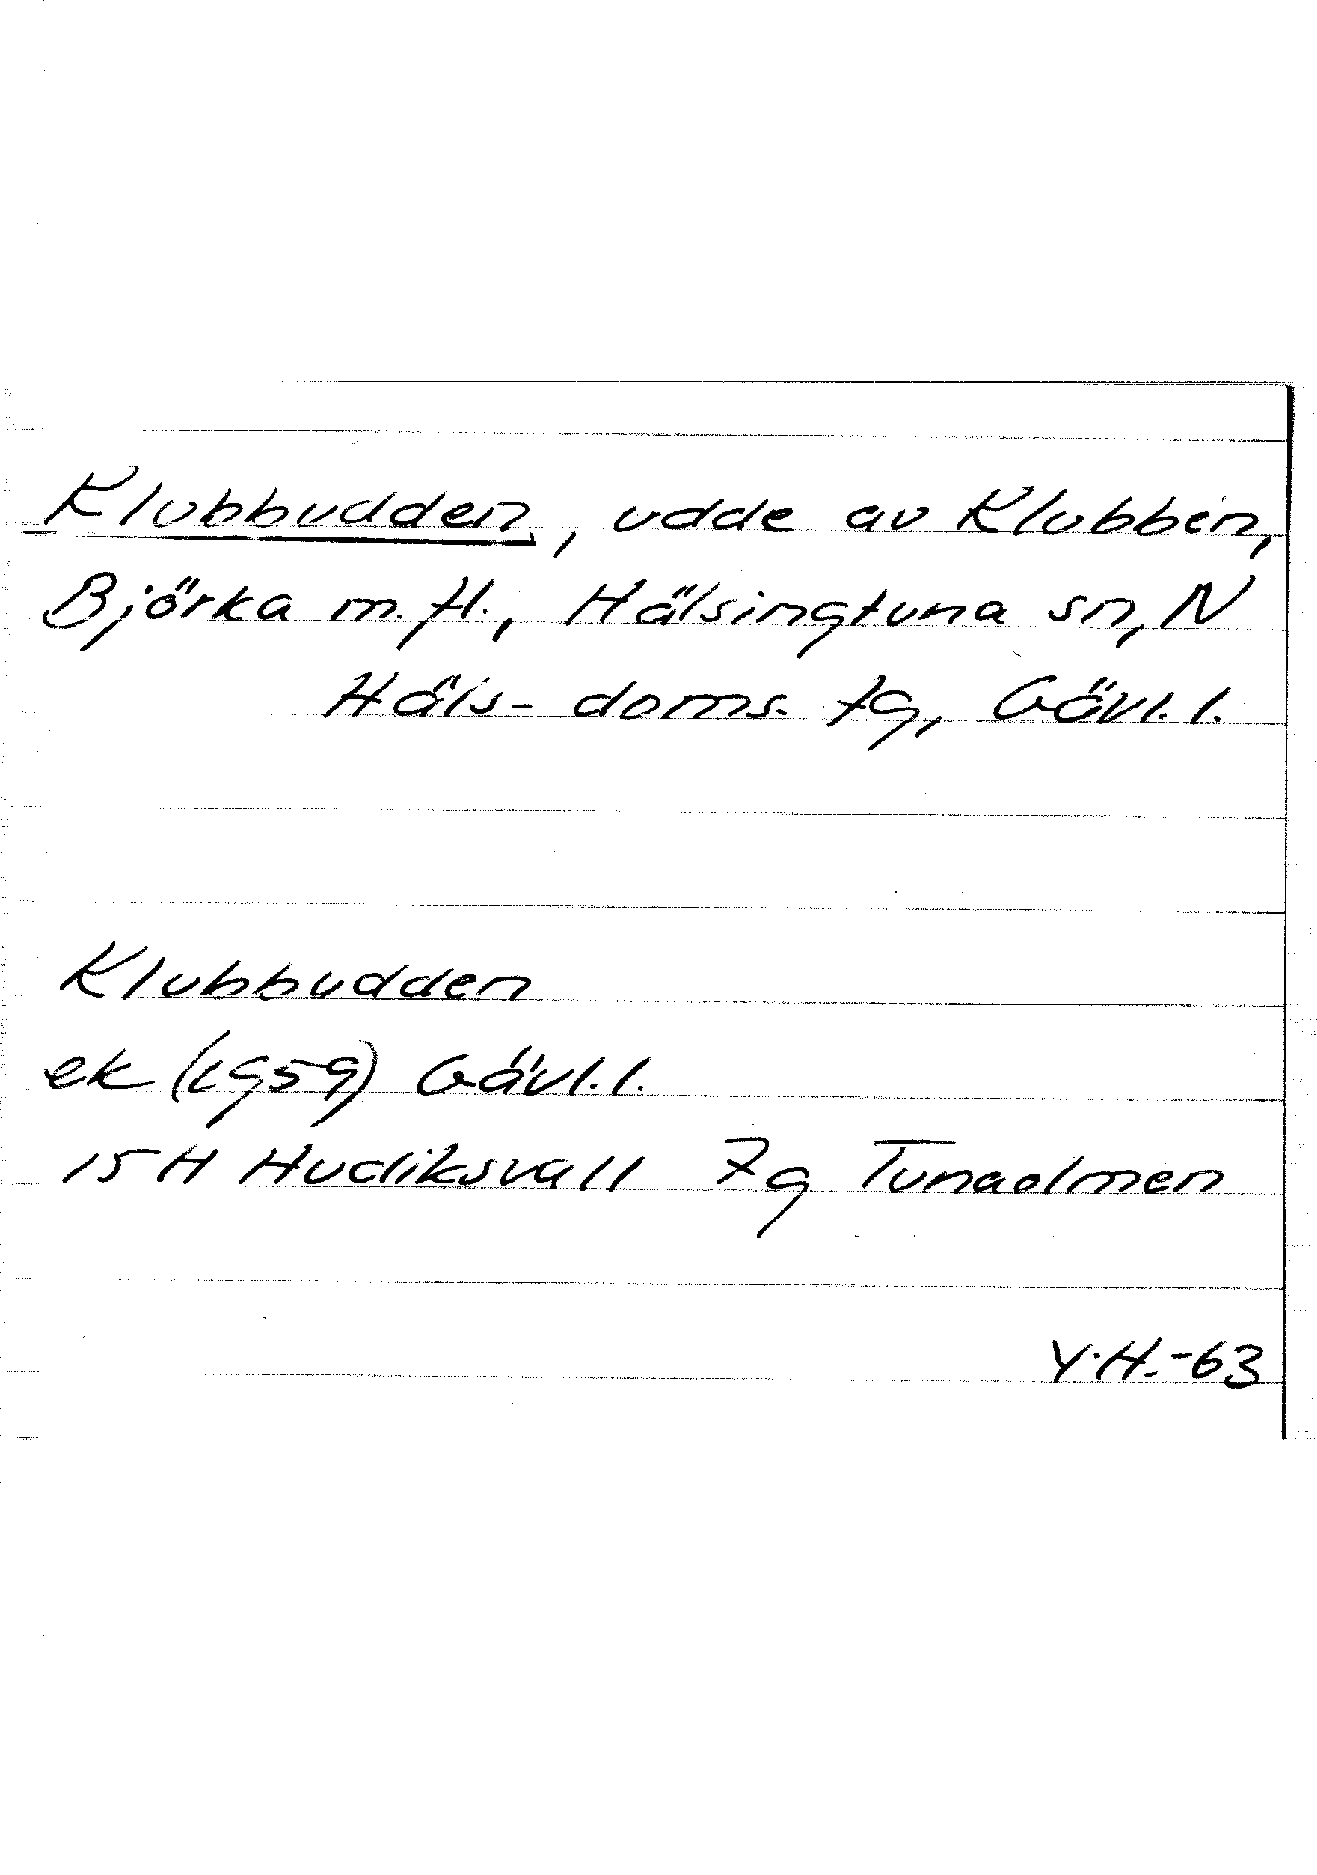 Klubbudden, udde av Klubben,
Björka m.fl., Hälsingtuna sn, N
Häls- doms. tg, Gävl. l.
Klubbudden
ek (1959) Gävl. l.
15 H Hudiksvall 7g Tunaolmen
Y.H.-63